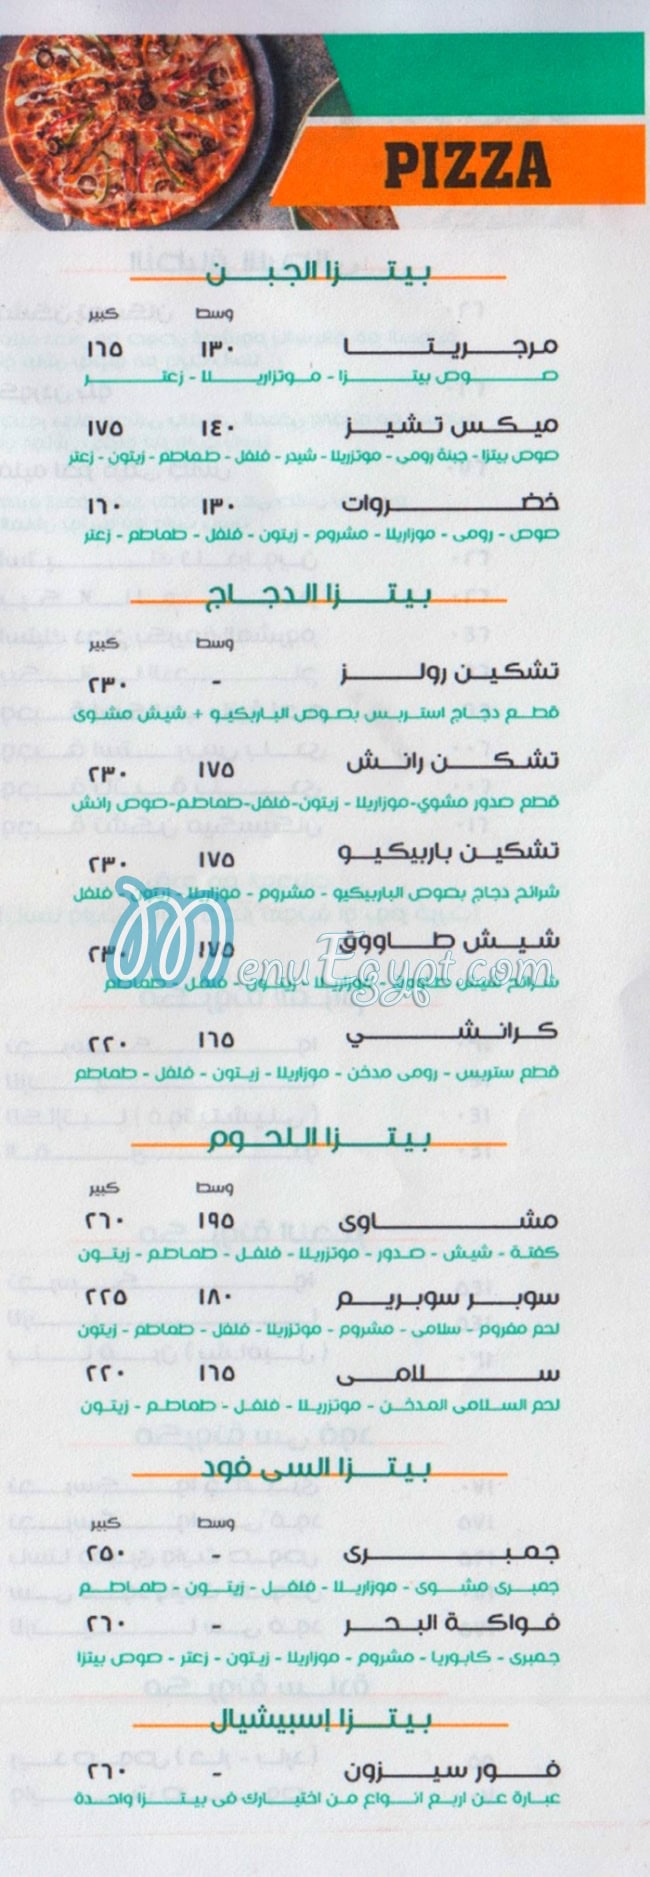 PIZZA
بيتزا الجبن
وسط كبير
مرجريتا ١٣٠ ١٦٥
صوص بيتزا - موتزاريلا - زعتر
ميكس تشيز ١٤٠ ١٧٥
صوص بيتزا - جبنة رومى - موتزريلا - شيدر - فلفل - طماطم - زيتون - زعتر
خضروات ١٣٠ ١٦٠
صوص - رومى - موزاريلا - مشروم - زيتون - فلفل - طماطم - زعتر
بيتزا الدجاج
وسط كبير
تشكين رولز - ٢٣٠
قطع دجاج استربس بصوص الباربكيو + شيش مشوى
تشكن رانش ١٧٥ ٢٣٠
قطع صدور مشوي-موزاريلا - زيتون-فلفل-طماطم-صوص رانش
تشكين باربيكيو ١٧٥ ٢٣٠
شرائح دجاج بصوص الباربيكيو - مشروم - موزاريلا - زيتون - فلفل
شيش طاووق ١٧٥ ٢٣٠
MenuEgypt.com
شرائح شيش طاووق - موزاريلا - زيتون - فلفل - طماطم
كرانشي ١٦٥ ٢٢٠
قطع ستربس - رومى مدخن - موزاريلا - زيتون - فلفل - طماطم
بيتزا اللحوم
وسط كبير
مشاوى ١٩٥ ٢٦٠
كفتة - شيش - صدور - موتزريلا - فلفل - طماطم - زيتون
سوبر سوبريم ١٨٠ ٢٢٥
لحم مفروم - سلامى - مشروم - موتزريلا - فلفل - طماطم - زيتون
سلامى ١٦٥ ٢٢٠
لحم السلامى المدخن - موتزريلا - فلفل - طماطم - زيتون
بيتزا السى فود
وسط كبير
جمبرى - ٢٥٠
جمبرى مشوى - موزاريلا - فلفل - زيتون - طماطم
فواكة البحر - ٢٦٠
جمبرى - كابوريا - مشروم - موزاريلا - زيتون - زعتر - صوص بيتزا
بيتزا إسبيشيال
فور سيزون - ٢٦٠
عبارة عن اربع انواع من اختيارك فى بيتزا واحدة